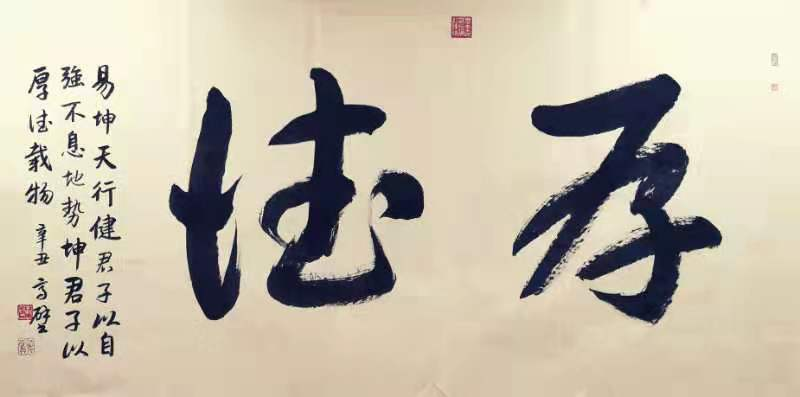 厚德
易坤天行健君子以自
強不息地勢坤君子以
厚德載物 辛丑 高